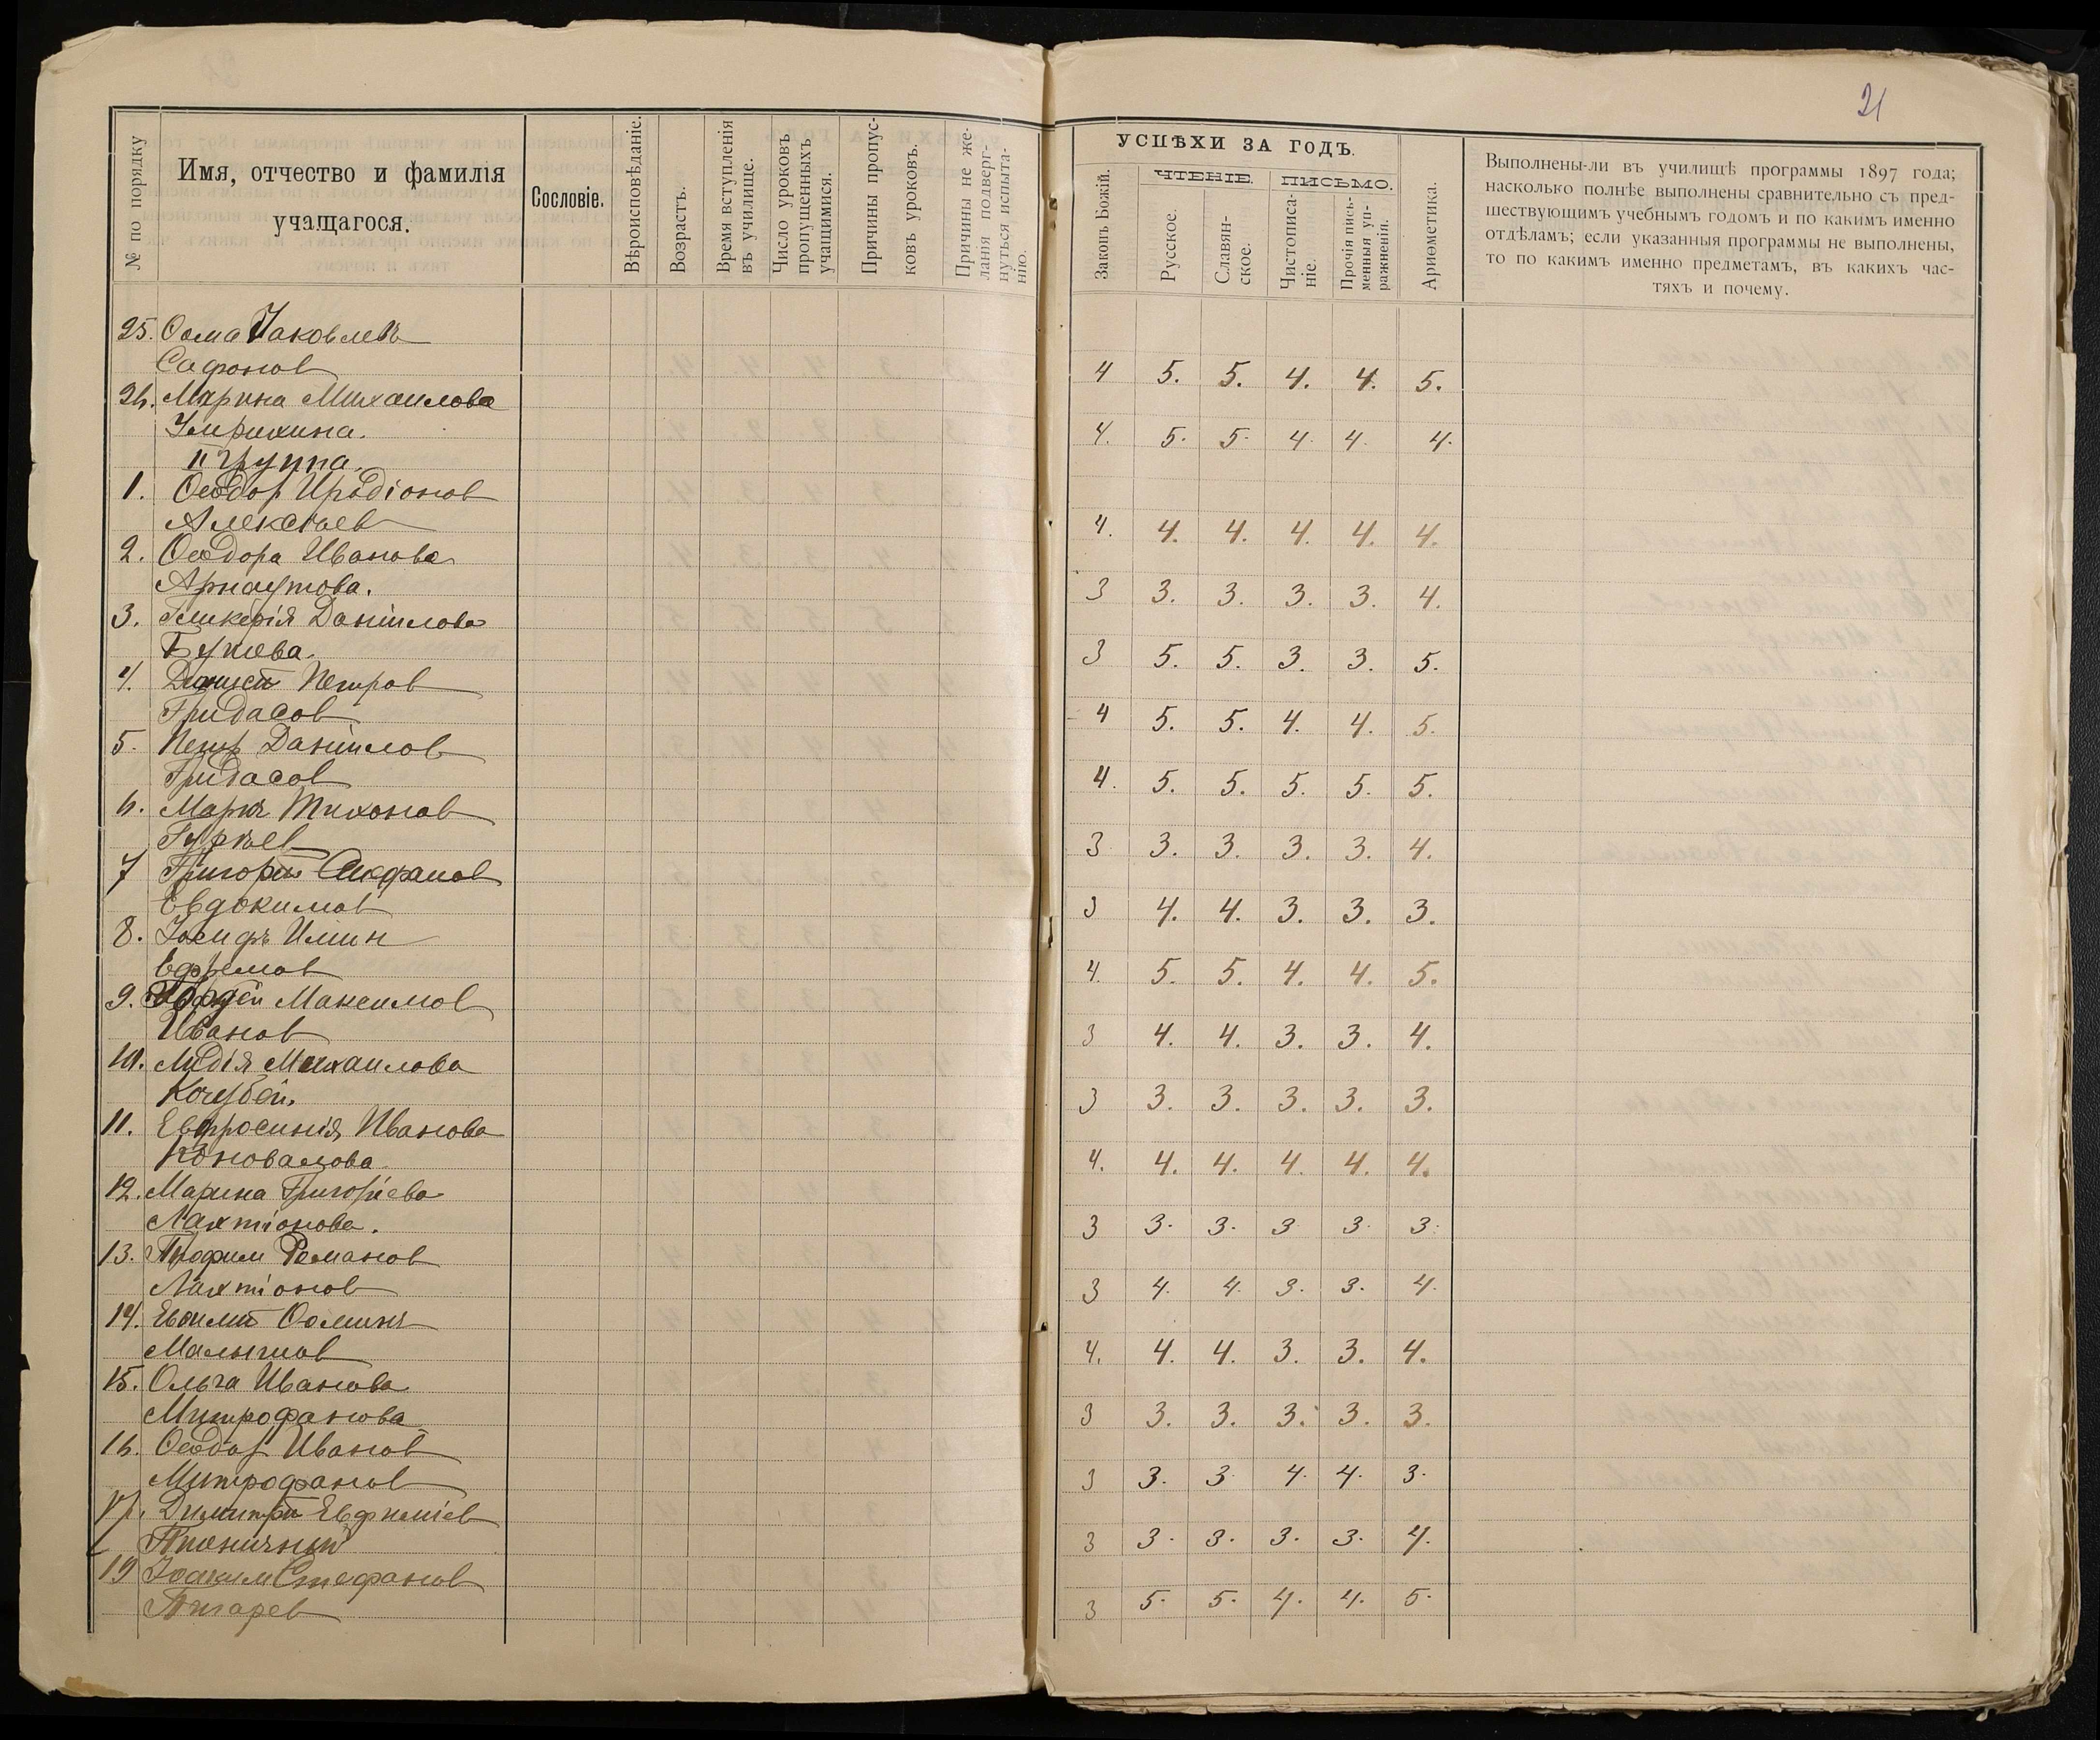 21
№ по порядку
Имя, отчество и фамилія
учащагося.
Сословіе.
Вѣроисповѣданіе.
Возрастъ.
Время вступленія
въ училище.
Число уроковъ
пропущенныхъ
учащимися.
Причины пропус-
ковъ уроковъ.
Причины не же-
ланія подверг-
нуться испыта-
нію.
УСПѢХИ ЗА ГОДЪ.
Законъ Божій.
ЧТЕНІЕ.
Русское.
Славян-
ское.
ПИСЬМО.
Чистописа-
ніе.
Прочія пись-
менныя уп-
ражненія.
Ариѳметика.
Выполнены-ли въ училищѣ программы 1897 года;
насколько полнѣе выполнены сравнительно съ пред-
шествующимъ учебнымъ годомъ и по какимъ именно
отдѣламъ; если указанныя программы не выполнены,
то по какимъ именно предметамъ, въ какихъ час-
тяхъ и почему.
25. Ѳома Яковлевъ
Сафонов 4 5. 5. 4. 4. 5.
26. Марина Михаилова
4. 5. 5. 4. 4. 4.
II Группа.
1. Ѳеодор Иродіонов
Алексѣев 4. 4. 4. 4. 4. 4.
2. Ѳеодора Иванова
Арнаутова. 3 3. 3. 3. 3. 4.
3. Гликерія Даніилова
3 5. 5. 3. 3. 5.
4. Петров
Гридасов 4 5. 5. 4. 4. 5.
5. Петр Даніилов
Гридасов 4. 5. 5. 5. 5. 5.
6. Маркъ Тихонов
Гурьев 3 3. 3. 3. 3. 4.
7 Григорій
Евдокимов 3 4. 4. 3. 3. 3.
8. Іосифъ Илиин
Ефремов 4. 5. 5. 4. 4. 5.
9. Гордѣй Максимов
Иванов 3 4. 4. 3. 3. 4.
10. Лидія Михаилова
Кочубей. 3 3. 3. 3. 3. 3.
11. Евфросинія Иванова
Коновалова 4. 4. 4. 4. 4. 4.
12. Марина Григоріева
Лахтіонова. 3 3. 3. 3 3. 3.
13. Трофим Романов
Лахтіонов 3 4. 4. 3. 3. 4.
14. Ѳоминъ
Малыгинов 4. 4. 4. 3. 3. 4.
15. Ольга Иванова
Митрофанова 3 3. 3. 3. 3. 3.
16. Ѳеодор Иванов
Митрофанов 3 3. 3 4. 4. 3.
17. Димитрій Евфиміев
Пшеничный 3 3. 3. 3. 3. 4.
19 Іоаким Стефанов
Пигарев 3 5. 5. 4. 4. 5.